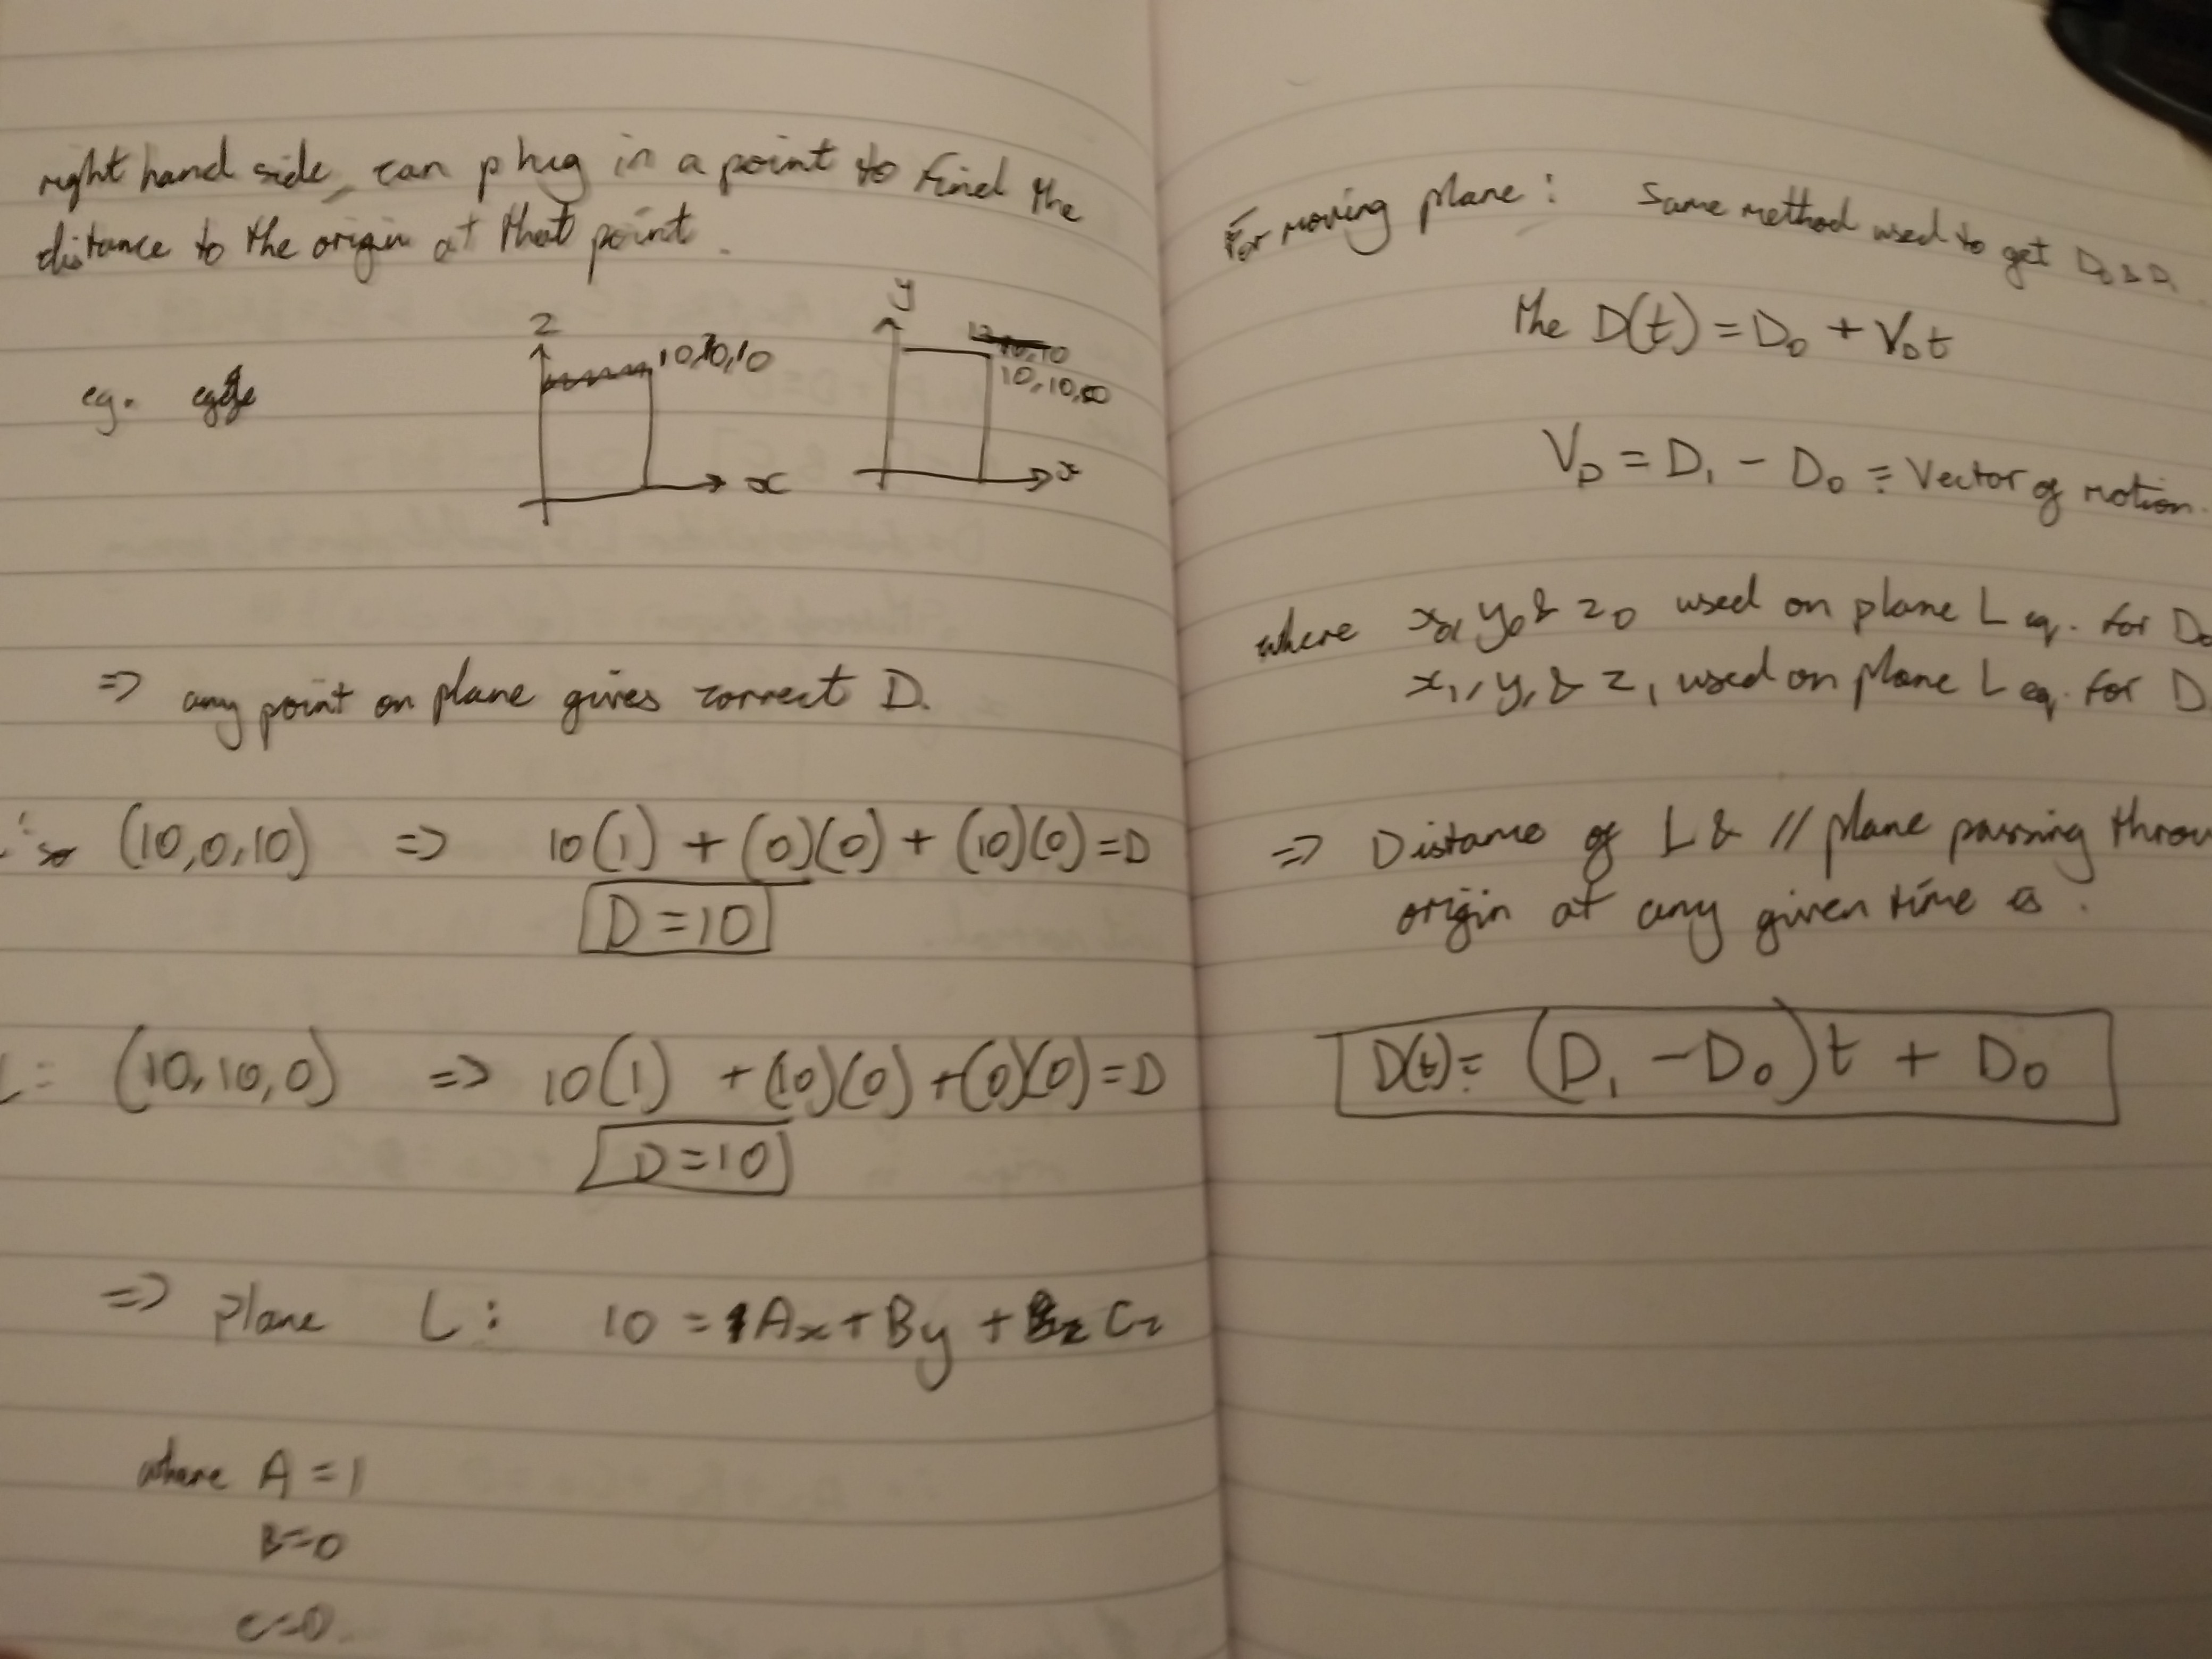 right hand side, can plug in a point to find the
distance to the origin at that point.
eg.
z
10,0,10
x
y
10,10,0
x
=> any point on plane gives correct D.
(10,0,10) => 10(1) + (0)(0) + (10)(0) = D
D = 10
(10,10,0) => 10(1) + (10)(0) + (0)(0) = D
D = 10
=> plane L: 10 = Ax + By + Cz
where A = 1
B = 0
C = 0
For moving plane: Same method used to get D₀ & D₁
the D(t) = D₀ + V_D t
V_D = D₁ - D₀ = Vector of motion.
where x₀, y₀ & z₀ used on plane L eq. for D₀
x₁, y₁ & z₁ used on plane L eq. for D
=> Distance of L & // plane passing throu
origin at any given time is:
D(t) = (D₁ - D₀)t + D₀